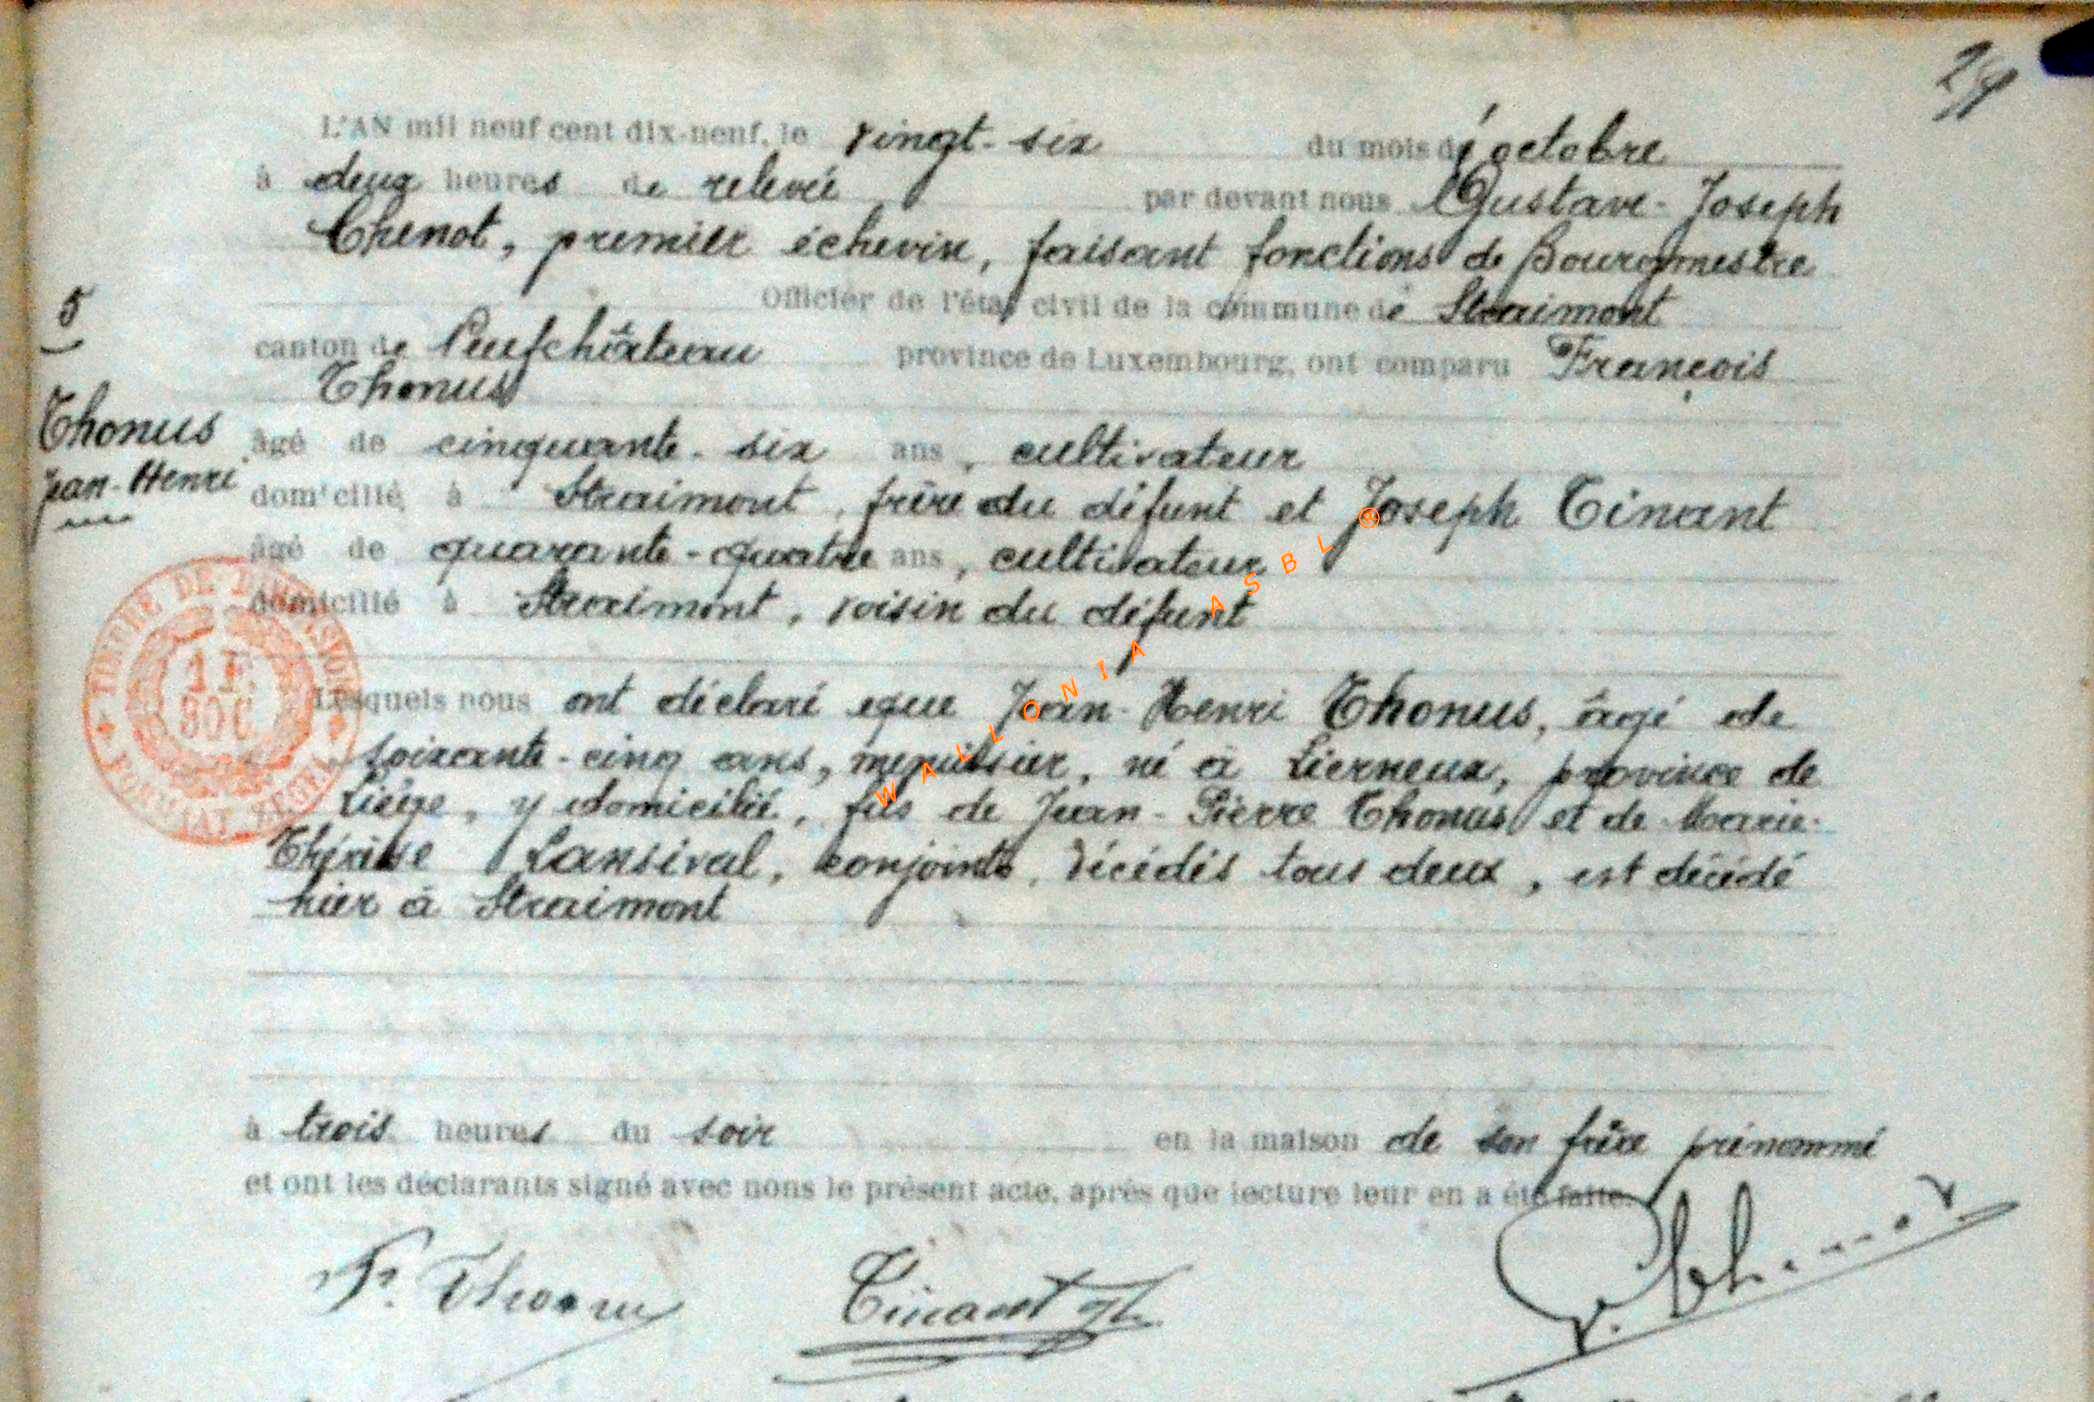 29
L'AN mil neuf cent dix-neuf, le vingt-six du mois d'octobre
à deux heures de relevée par devant nous Gustave-Joseph
Chenot, premier échevin, faisant fonctions de Bourgmestre
Officier de l'état civil de la commune de Straimont
5
canton de Neufchâteau province de Luxembourg, ont comparu François
Thonus
Thonus
Jean-Henri
âgé de cinquante-six ans, cultivateur
domicilié à Straimont, frère du défunt et Joseph Tinant
âgé de quarante-quatre ans, cultivateur
domicilié à Straimont, voisin du défunt
TIMBRE DE DIMENSION
1 F.
30 C
FORMAT REGRE
Lesquels nous ont déclaré que Jean-Henri Thonus, âgé de
soixante-cinq ans, menuisier, né à Lierneux, province de
Liège, y domicilié, fils de Jean-Pierre Thonus et de Marie-
Thérèse Lansival, conjoints, décédés tous deux, est décédé
hier à Straimont
à trois heures du soir en la maison de son frère prénommé
et ont les déclarants signé avec nous le présent acte, après que lecture leur en a été faite.
F. Thonus
Tinant Jh
G. Chenot
WALLONIA ASBL ®